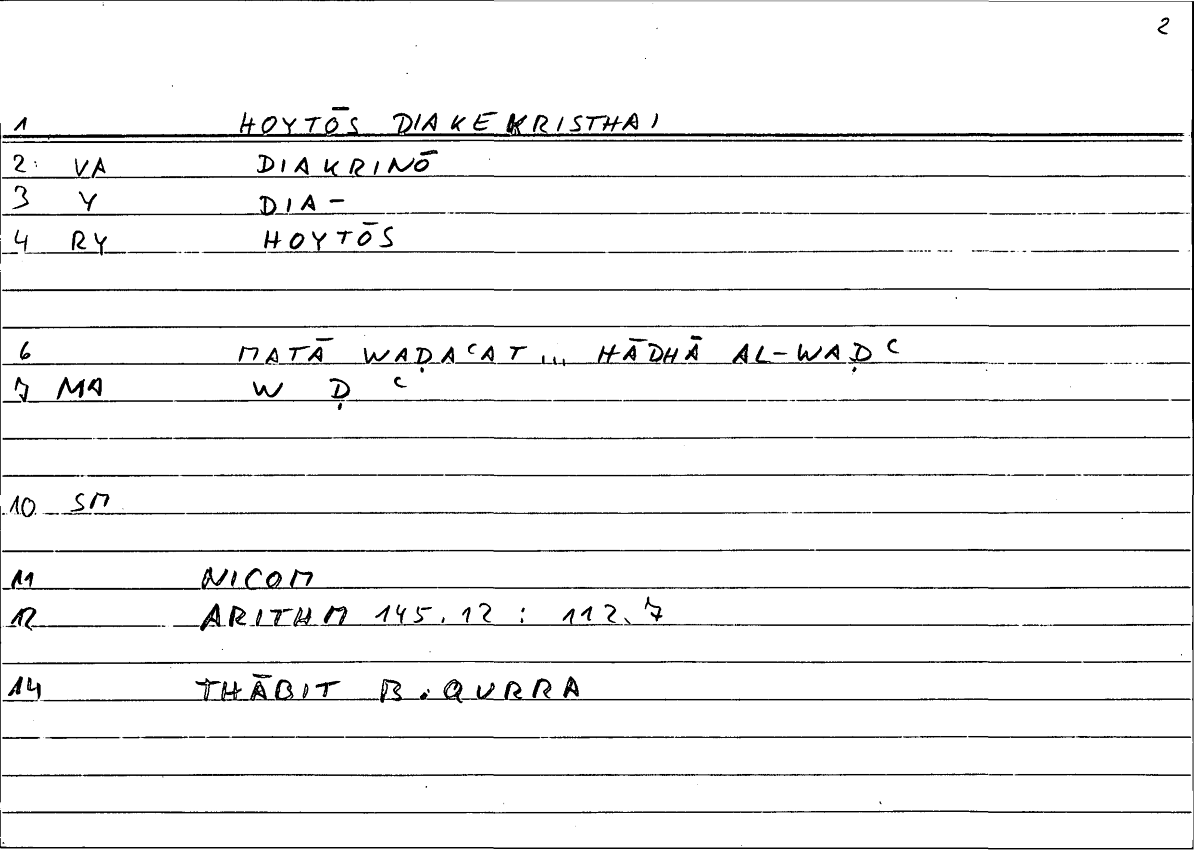 2
1 HOYTŌS DIAKEKRISTHAI
2: VA DIAKRINŌ
3 Y DIA-
4 RY HOYTŌS
6 MATĀ WAḌAʿAT... HĀDHĀ AL-WAḌʿ
7 MA W Ḍ ʿ
10 SM
11 NICOM
12 ARITHM 145.12 : 112.7
14 THĀBIT B. QURRA